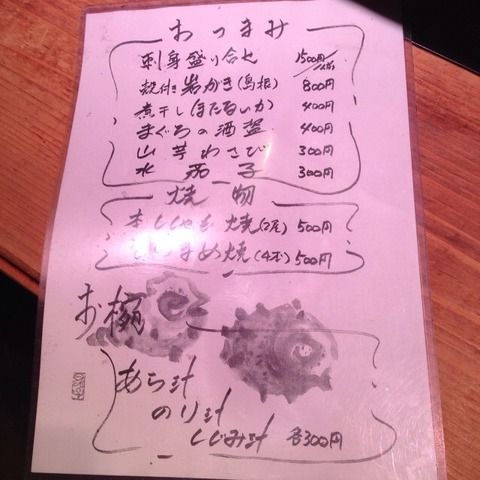 おつまみ
刺身盛り合せ 1500円
殻付き岩がき(島根) 800円
煮干しほたるいか 400円
まぐろの酒盗 400円
山芋わさび 300円
水茄子 300円
焼物
本ししゃも焼(2尾) 500円
焼(4本) 500円
お椀
あら汁
のり汁
しじみ汁 各300円